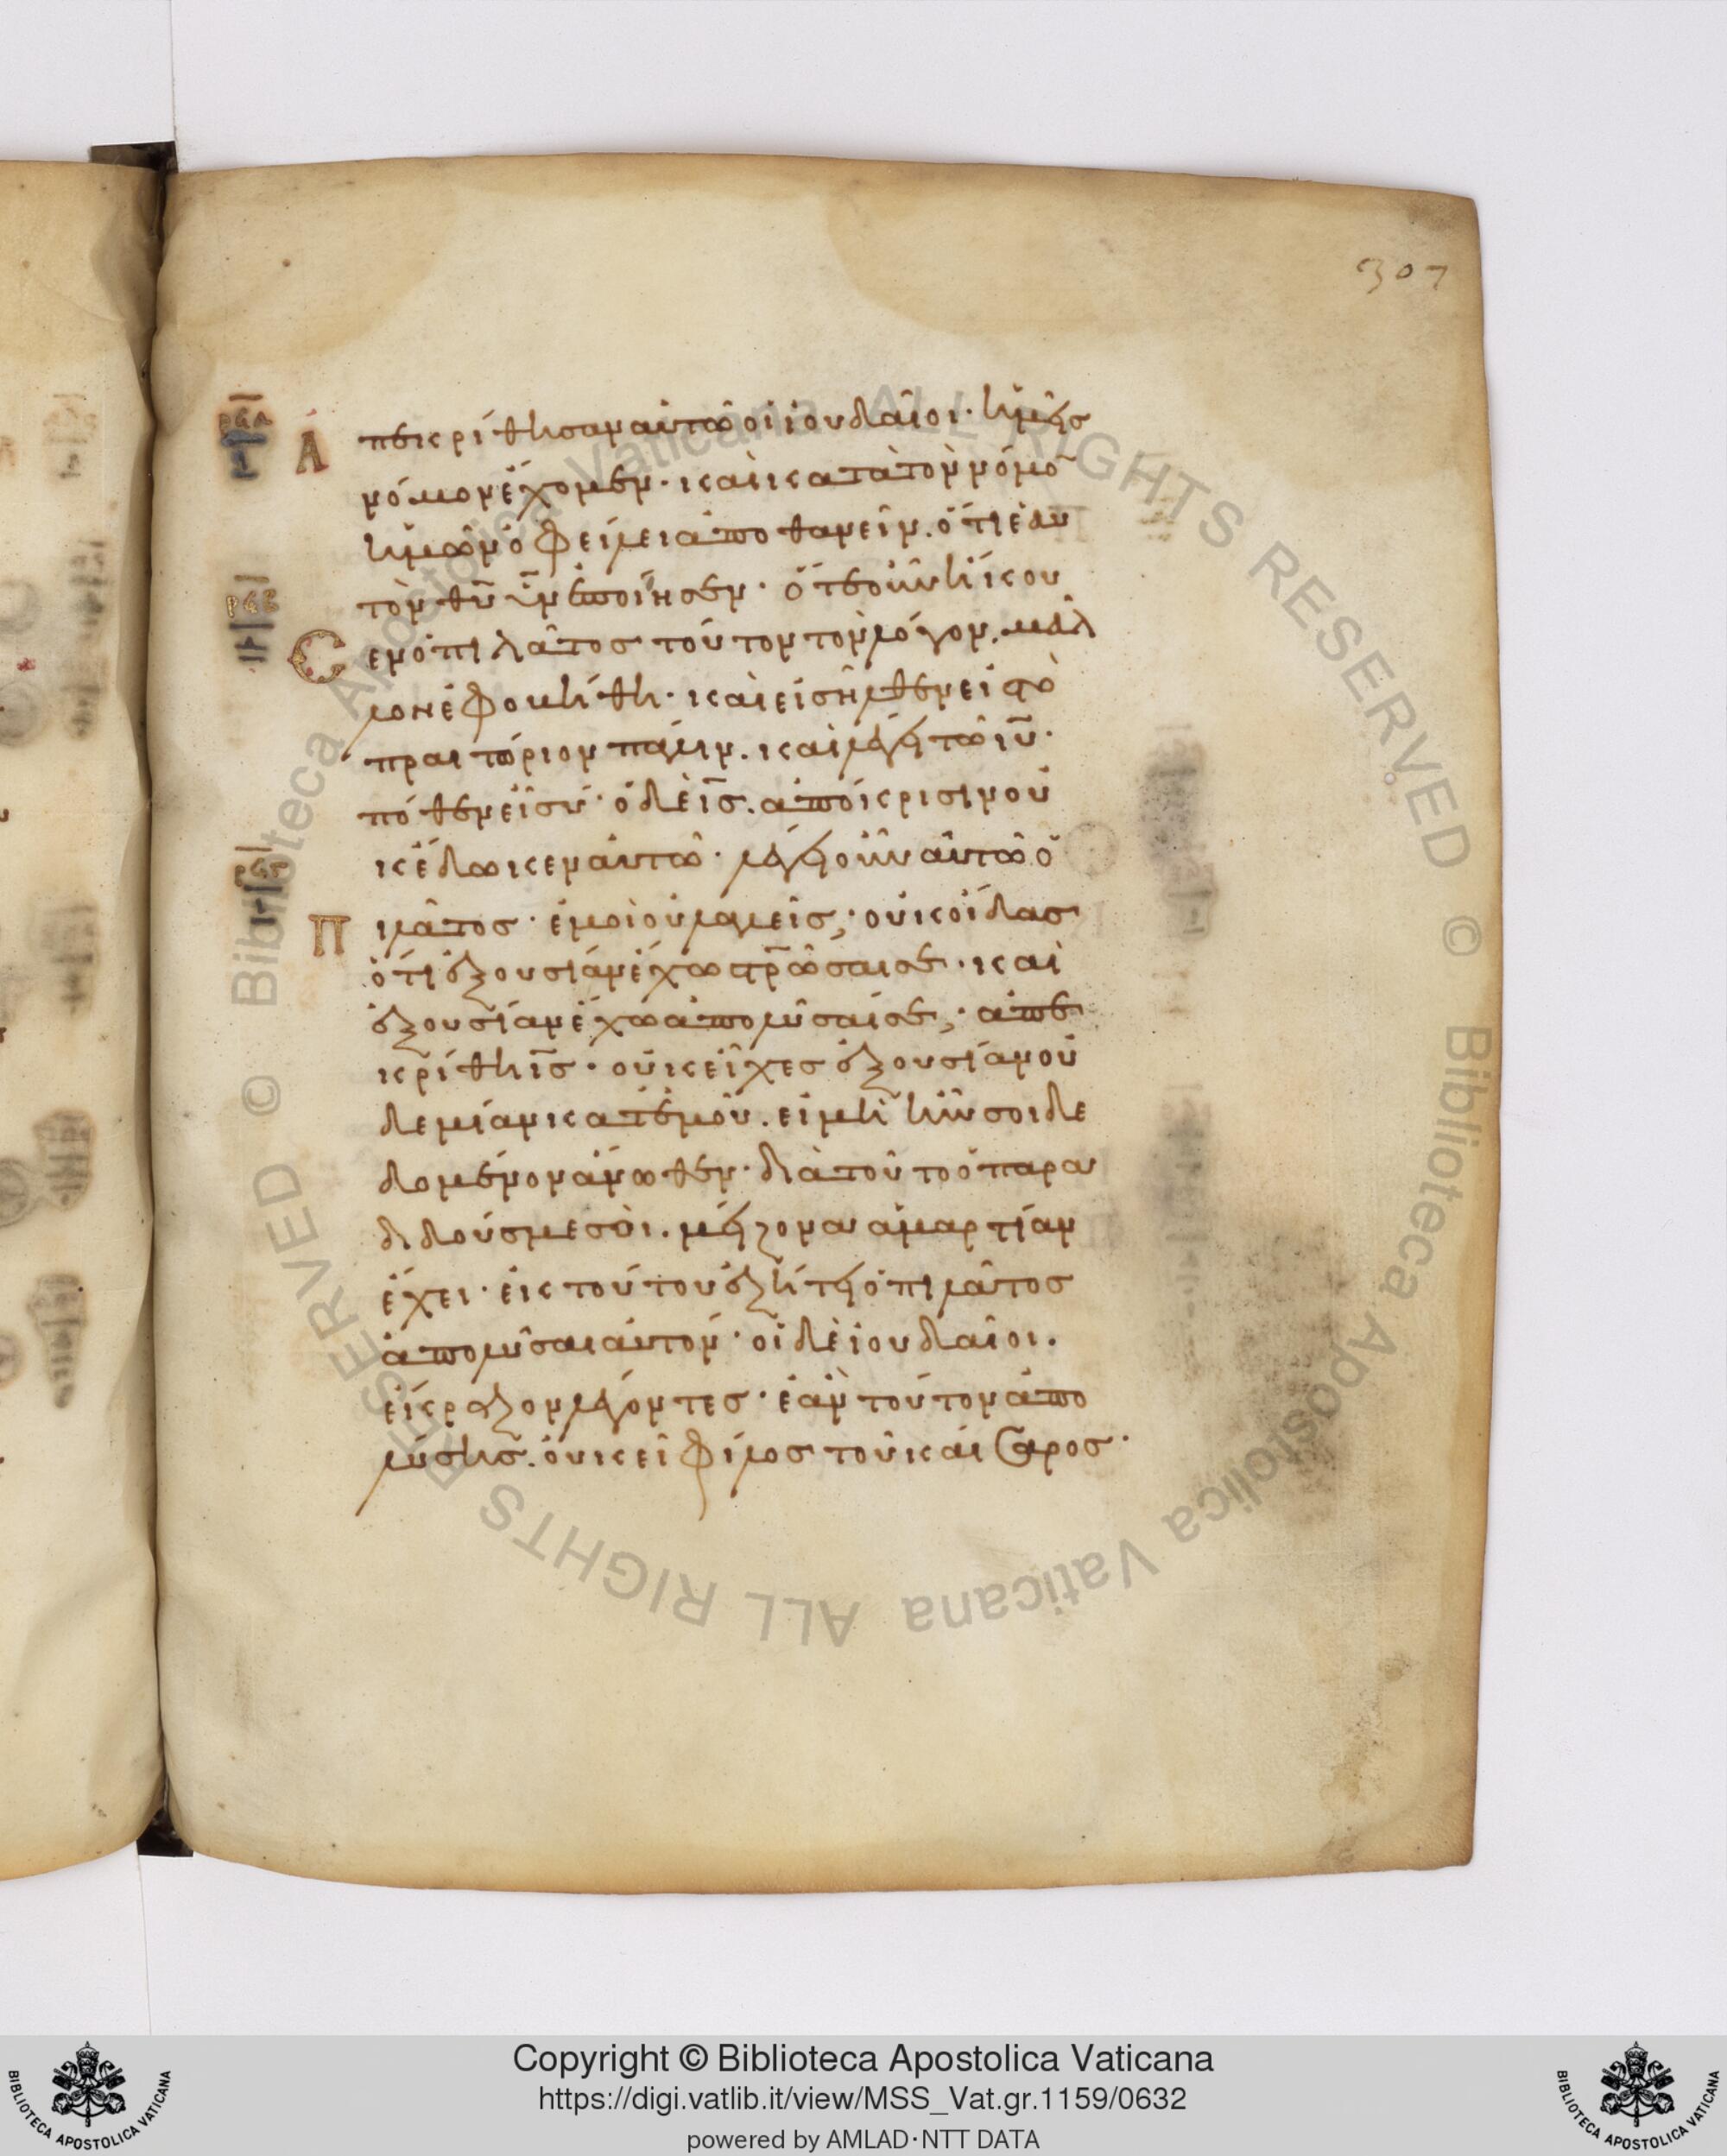 307
ρπδ
Α πεκρίθησαν αὐτῶ οἱ ἰουδαῖοι· ἡμεῖς
νόμον ἔχομεν· καὶ κατὰ τὸν νόμο̅
ἡμῶν ὀφείλει ἀποθανεῖν. ὅτι ἑαυ
τὸν θ̅υ̅ υ̅ν̅ ἐποίησεν· ὅτε οὖν ἤκου
Σ εν ὁ πιλᾶτος τοῦτον τὸν λόγον. μᾶλ
λον ἐφοβήθη· καὶ εἰσῆλθεν εἰς τὸ
πραιτόριον πάλιν. καὶ λέγει τῶ ι̅υ̅·
πόθεν εἶ σύ· ὁ δὲ ι̅σ̅. ἀπόκρισιν οὐ
κ ἔδωκεν αὐτῶ· λέγει οὖν αὐτῶ ὁ
Π ιλᾶτος· ἐμοὶ οὐ λαλεῖς; οὐκ οἶδας
ὅτι ἐξουσίαν ἔχω σ̅ρ̅ῶσαι σε· καὶ
ἐξουσίαν ἔχω ἀπολῦσαί σε; ἀπε
κρίθη ι̅σ̅· οὐκ εἶχες ἐξουσίαν οὐ
δεμίαν κατ' ἐμοῦ. εἰ μὴ ἦν σοι δε
δομένον ἄνωθεν· διὰ τοῦτο ὁ παρα
διδούς με σοὶ. μείζονα ἁμαρτίαν
ἔχει· ἐκ τούτου ἐζήτει ὁ πιλᾶτος
ἀπολῦσαι αὐτόν· οἱ δὲ ἰουδαῖοι.
ἔκραζον λέγοντες· ἐὰν τοῦτον ἀπο
λύσης. οὐκ εἶ φίλος τοῦ καίσαρος·
Copyright © Biblioteca Apostolica Vaticana
https://digi.vatlib.it/view/MSS_Vat.gr.1159/0632
powered by AMLAD·NTT DATA
BIBLIOTECA APOSTOLICA VATICANA
BIBLIOTECA APOSTOLICA VATICANA
© Biblioteca Apostolica Vaticana ALL RIGHTS RESERVED © Biblioteca Apostolica Vaticana ALL RIGHTS RESERVED